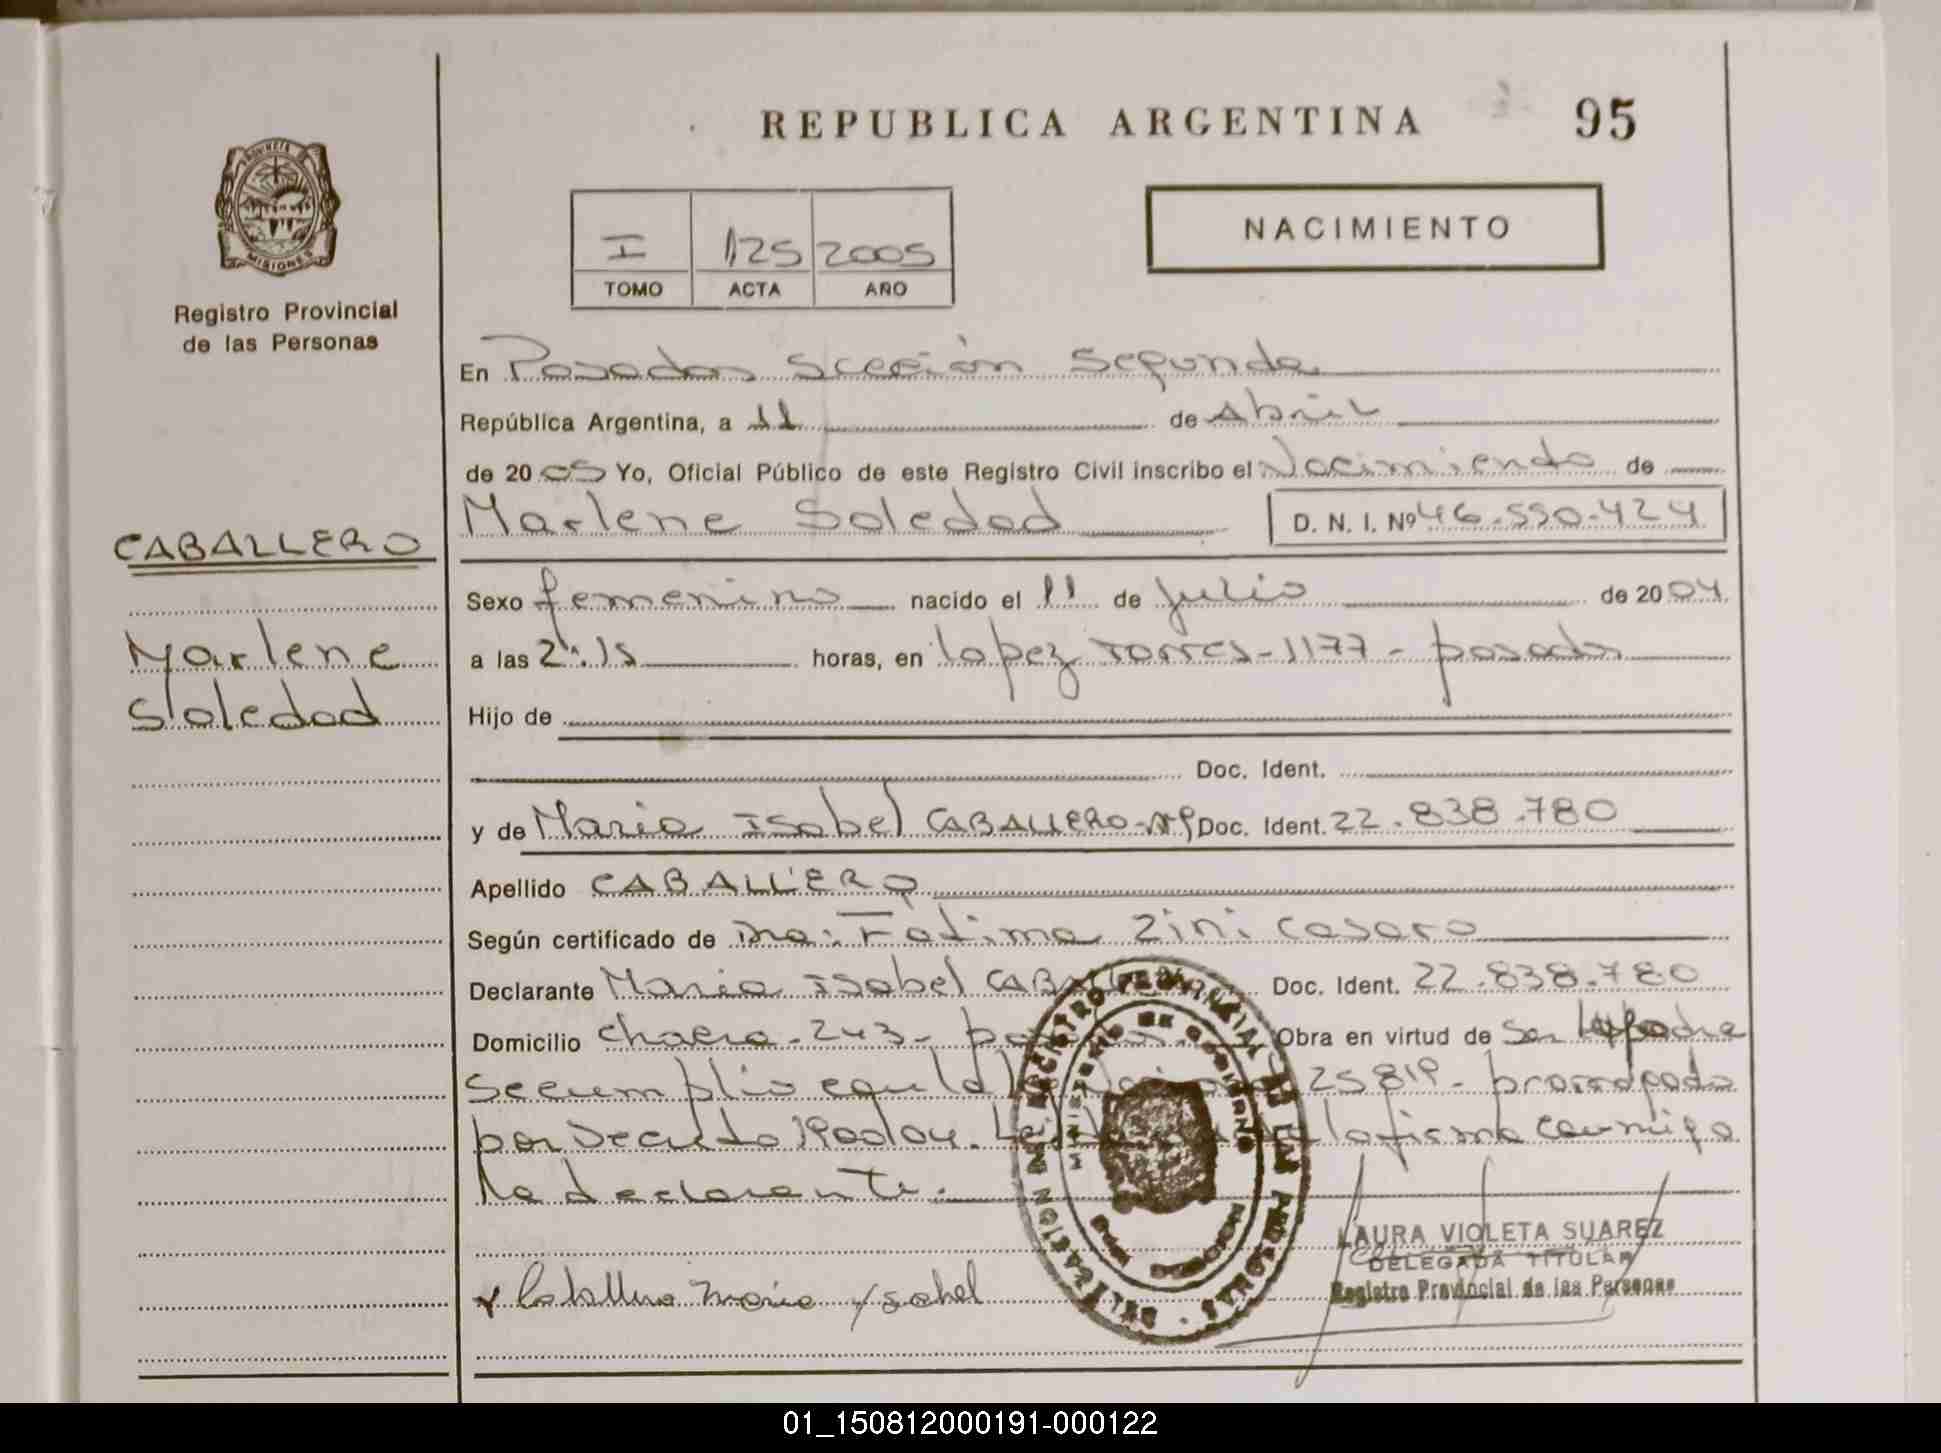 REPUBLICA ARGENTINA
95
PROVINCIA DE
MISIONES
Registro Provincial
de las Personas
I 125 2005
TOMO ACTA AÑO
NACIMIENTO
En Posadas Sección Segunda
República Argentina, a 11 de Abril
de 2005 Yo, Oficial Público de este Registro Civil inscribo el Nacimiento de
Marlene Soledad D. N. I. Nº 46.550.424
CABALLERO
Marlene
Soledad
Sexo femenino nacido el 11 de julio de 2004
a las 2:15 horas, en Lopez Torres-1177-posadas
Hijo de
Doc. Ident.
y de Maria Isabel CABALLERO Doc. Ident. 22.838.780
Apellido CABALLERO
Según certificado de Dra. Fatima Zini Casaro
Declarante Maria Isabel CABALLERO Doc. Ident. 22.838.780
Domicilio Chacra-243- Obra en virtud de Ser
Se cumplio con la 25819- prorrogada
por Decreto la firma conmigo
la declarante.
Caballero Maria Ysabel
DELEGACION REGISTRO PROVINCIAL DE LAS PERSONAS
MINISTERIO DE GOBIERNO
LAURA VIOLETA SUAREZ
DELEGADA TITULAR
Registro Provincial de las Personas
01_150812000191-000122